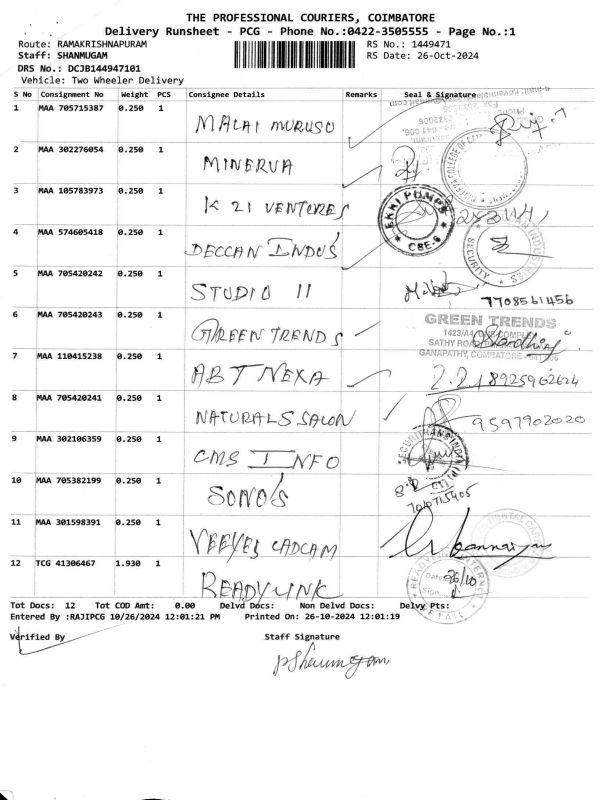 THE PROFESSIONAL COURIERS, COIMBATORE
Delivery Runsheet - PCG - Phone No.:0422-3505555 - Page No.:1
Route: RAMAKRISHNAPURAM RS No.: 1449471
Staff: SHANMUGAM RS Date: 26-Oct-2024
DRS No.: DCJB144947101
Vehicle: Two Wheeler Delivery
S No Consignment No Weight PCS Consignee Details Remarks Seal & Signature
1 MAA 705715387 0.250 1 MALAI MURUSO
2 MAA 302276054 0.250 1 MINERVA
3 MAA 105783973 0.250 1 K 21 VENTURES
EKKI PUMPS CBE-6
4 MAA 574605418 0.250 1 DECCAN INDUS
SECURITY
5 MAA 705420242 0.250 1 STUDIO 11
7708561456
6 MAA 705420243 0.250 1 GREEN TRENDS
GREEN TRENDS
SATHY ROAD
GANAPATHY, COIMBATORE - 641 006
7 MAA 110415238 0.250 1 ABT NEXA
8925962624
8 MAA 705420241 0.250 1 NATURALS SALON
9597902020
9 MAA 302106359 0.250 1 CMS INFO
10 MAA 705382199 0.250 1 SONO'S
11 MAA 301598391 0.250 1 VEEYES CADCAM
12 TCG 41306467 1.930 1 READYLINK
Date 26/10
Tot Docs: 12 Tot COD Amt: 0.00 Delvd Docs: Non Delvd Docs: Delvy Pts:
Entered By :RAJIPCG 10/26/2024 12:01:21 PM Printed On: 26-10-2024 12:01:19
Verified By Staff Signature